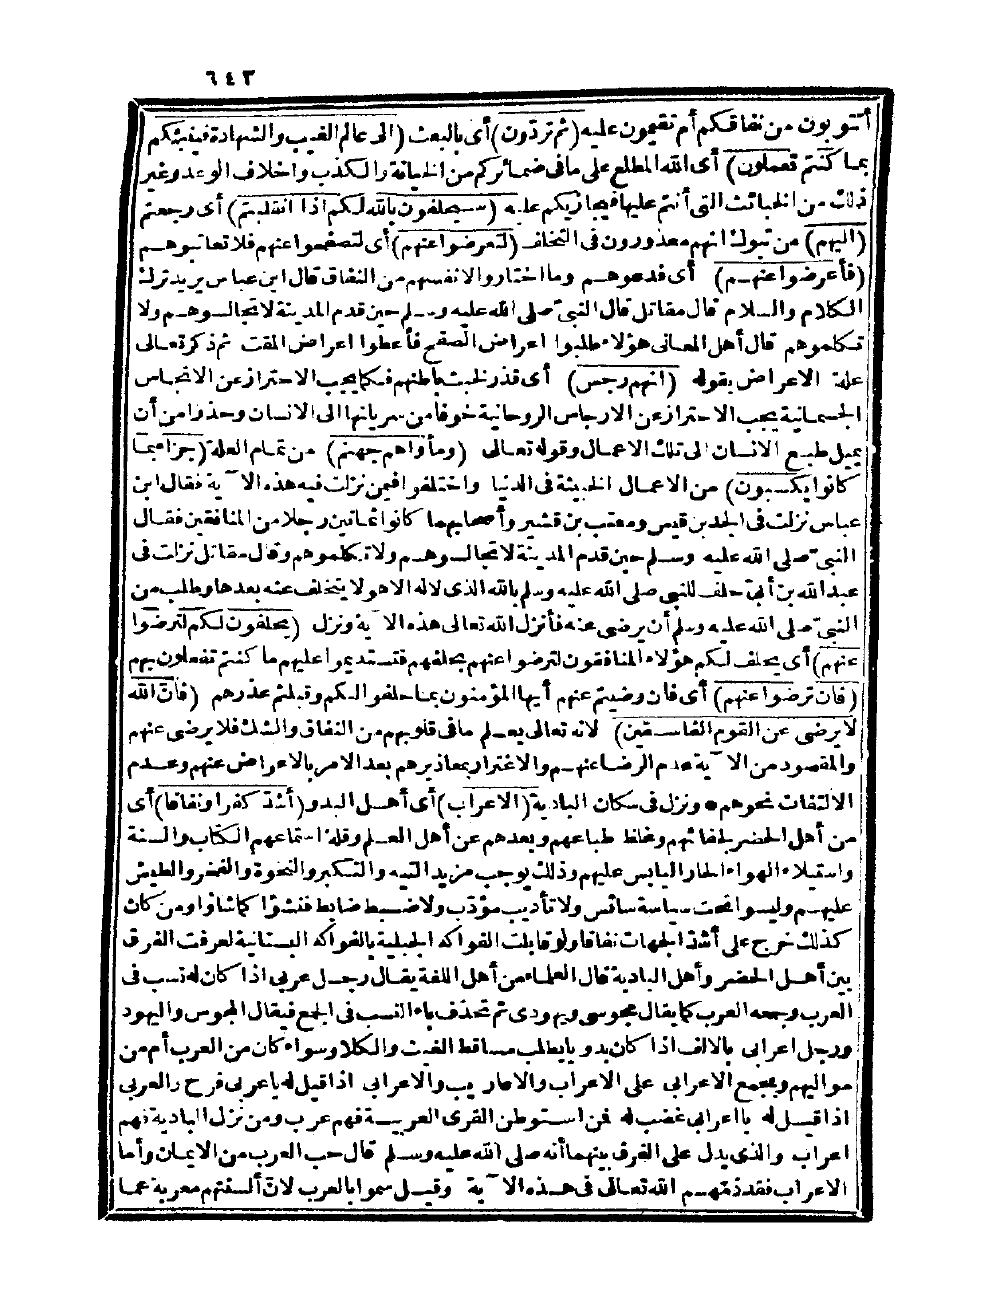 ٦٤٣
أتتوبون من نفاقكم أم تقيمون عليه (ثم تردّون) أى بالبعث (الى عالم الغيب والشهادة فينبئكم
بما كنتم تعملون) أى الله المطلع على ما فى ضمائركم من الخيانة والكذب واخلاف الوعد وغير
ذلك من الخبائث التى أنتم عليها فيجازيكم عليه (سيحلفون بالله لكم اذا انقلبتم) أى رجعتم
(اليهم) من تبوك انهم معذورون فى التخلف (لتعرضوا عنهم) أى لتصفحوا عنهم فلا تعاتبوهم
(فأعرضوا عنهم) أى فدعوهم وما اختاروا لانفسهم من النفاق قال ابن عباس يريد ترك
الكلام والسلام قال مقاتل قال النبىّ صلى الله عليه وسلم حين قدم المدينة لا تجالسوهم ولا
تكلموهم قال أهل المعانى هؤلاء طلبوا اعراض الصفح فأعطوا اعراض المقت ثم ذكر تعالى
علة الاعراض بقوله (انهم رجس) أى قذر لخبث باطنهم فكما يجب الاحتراز عن الانجاس
الجسمانية يجب الاحتراز عن الارجاس الروحانية خوفا من سريانها الى الانسان وحذرا من أن
يميل طبع الانسان الى تلك الاعمال وقوله تعالى (ومأواهم جهنم) من تمام العلة (جزاء بما
كانوا يكسبون) من الاعمال الخبيثة فى الدنيا واختلفوا فيمن نزلت فيه هذه الآية فقال ابن
عباس نزلت فى الجد بن قيس ومعتب بن قشير وأصحابهما كانوا ثمانين رجلا من المنافقين فقال
النبىّ صلى الله عليه وسلم حين قدم المدينة لا تجالسوهم ولا تكلموهم وقال مقاتل نزلت فى
عبد الله بن أبىّ حلف للنبى صلى الله عليه وسلم بالله الذى لا اله الا هو لا يتخلف عنه بعدها وطلب من
النبىّ صلى الله عليه وسلم أن يرضى عنه فأنزل الله تعالى هذه الآية ونزل (يحلفون لكم لترضوا
عنهم) أى يحلف لكم هؤلاء المنافقون لترضوا عنهم بحلفهم فتستديموا عليهم ما كنتم تفعلون بهم
(فان ترضوا عنهم) أى فان رضيتم عنهم أيها المؤمنون بما حلفوا لكم وقبلتم عذرهم (فانّ الله
لا يرضى عن القوم الفاسقين) لانه تعالى يعلم ما فى قلوبهم من النفاق والشك فلا يرضى عنهم
والمقصود من الآية عدم الرضا عنهم والاغترار بمعاذيرهم بعد الامر بالاعراض عنهم وعدم
الالتفات نحوهم * ونزل فى سكان البادية (الاعراب) أى أهل البدو (أشدّ كفرا ونفاقا) أى
من أهل الحضر لجفائهم وغلظ طباعهم وبعدهم عن أهل العلم وقلة استماعهم الكتاب والسنة
واستيلاء الهواء الحار اليابس عليهم وذلك يوجب مزيد التيه والتكبر والنخوة والفخر والطيش
عليهم وليسوا تحت سياسة سائس ولا تأديب مؤدّب ولا ضبط ضابط فنشؤا كما شاؤا ومن كان
كذلك خرج على أشدّ الجهات نفاقا ولو قابلت الفواكه الجبلية بالفواكه البستانية لعرفت الفرق
بين أهل الحضر وأهل البادية قال العلماء من أهل اللغة يقال رجل عربى اذا كان له نسب فى
العرب وجمعه العرب كما يقال مجوسى ويهودى ثم تحذف ياء النسب فى الجمع فيقال المجوس واليهود
ورجل اعرابى بالالف اذا كان بدويا يطلب مساقط الغيث والكلا وسواء كان من العرب أم من
مواليهم ويجمع الاعرابى على الاعراب والاعاريب والاعرابى اذا قيل له يا عربى فرح والعربى
اذا قيل له يا اعرابى غضب له فمن استوطن القرى العربية فهم عرب ومن نزل البادية فهم
اعراب والذى يدل على الفرق بينهما أنه صلى الله عليه وسلم قال حب العرب من الايمان وأما
الاعراب فقد ذمّهم الله تعالى فى هذه الآية وقيل سموا بالعرب لانّ ألسنتهم معربة عما